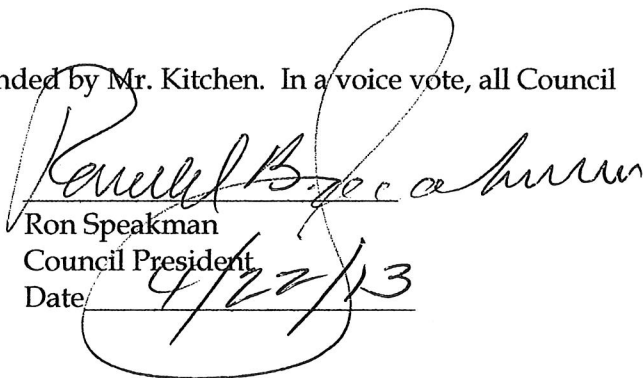 nded by Mr. Kitchen. In a voice vote, all Council
Ronald B. Speakman
Ron Speakman
Council President
Date 4/22/13